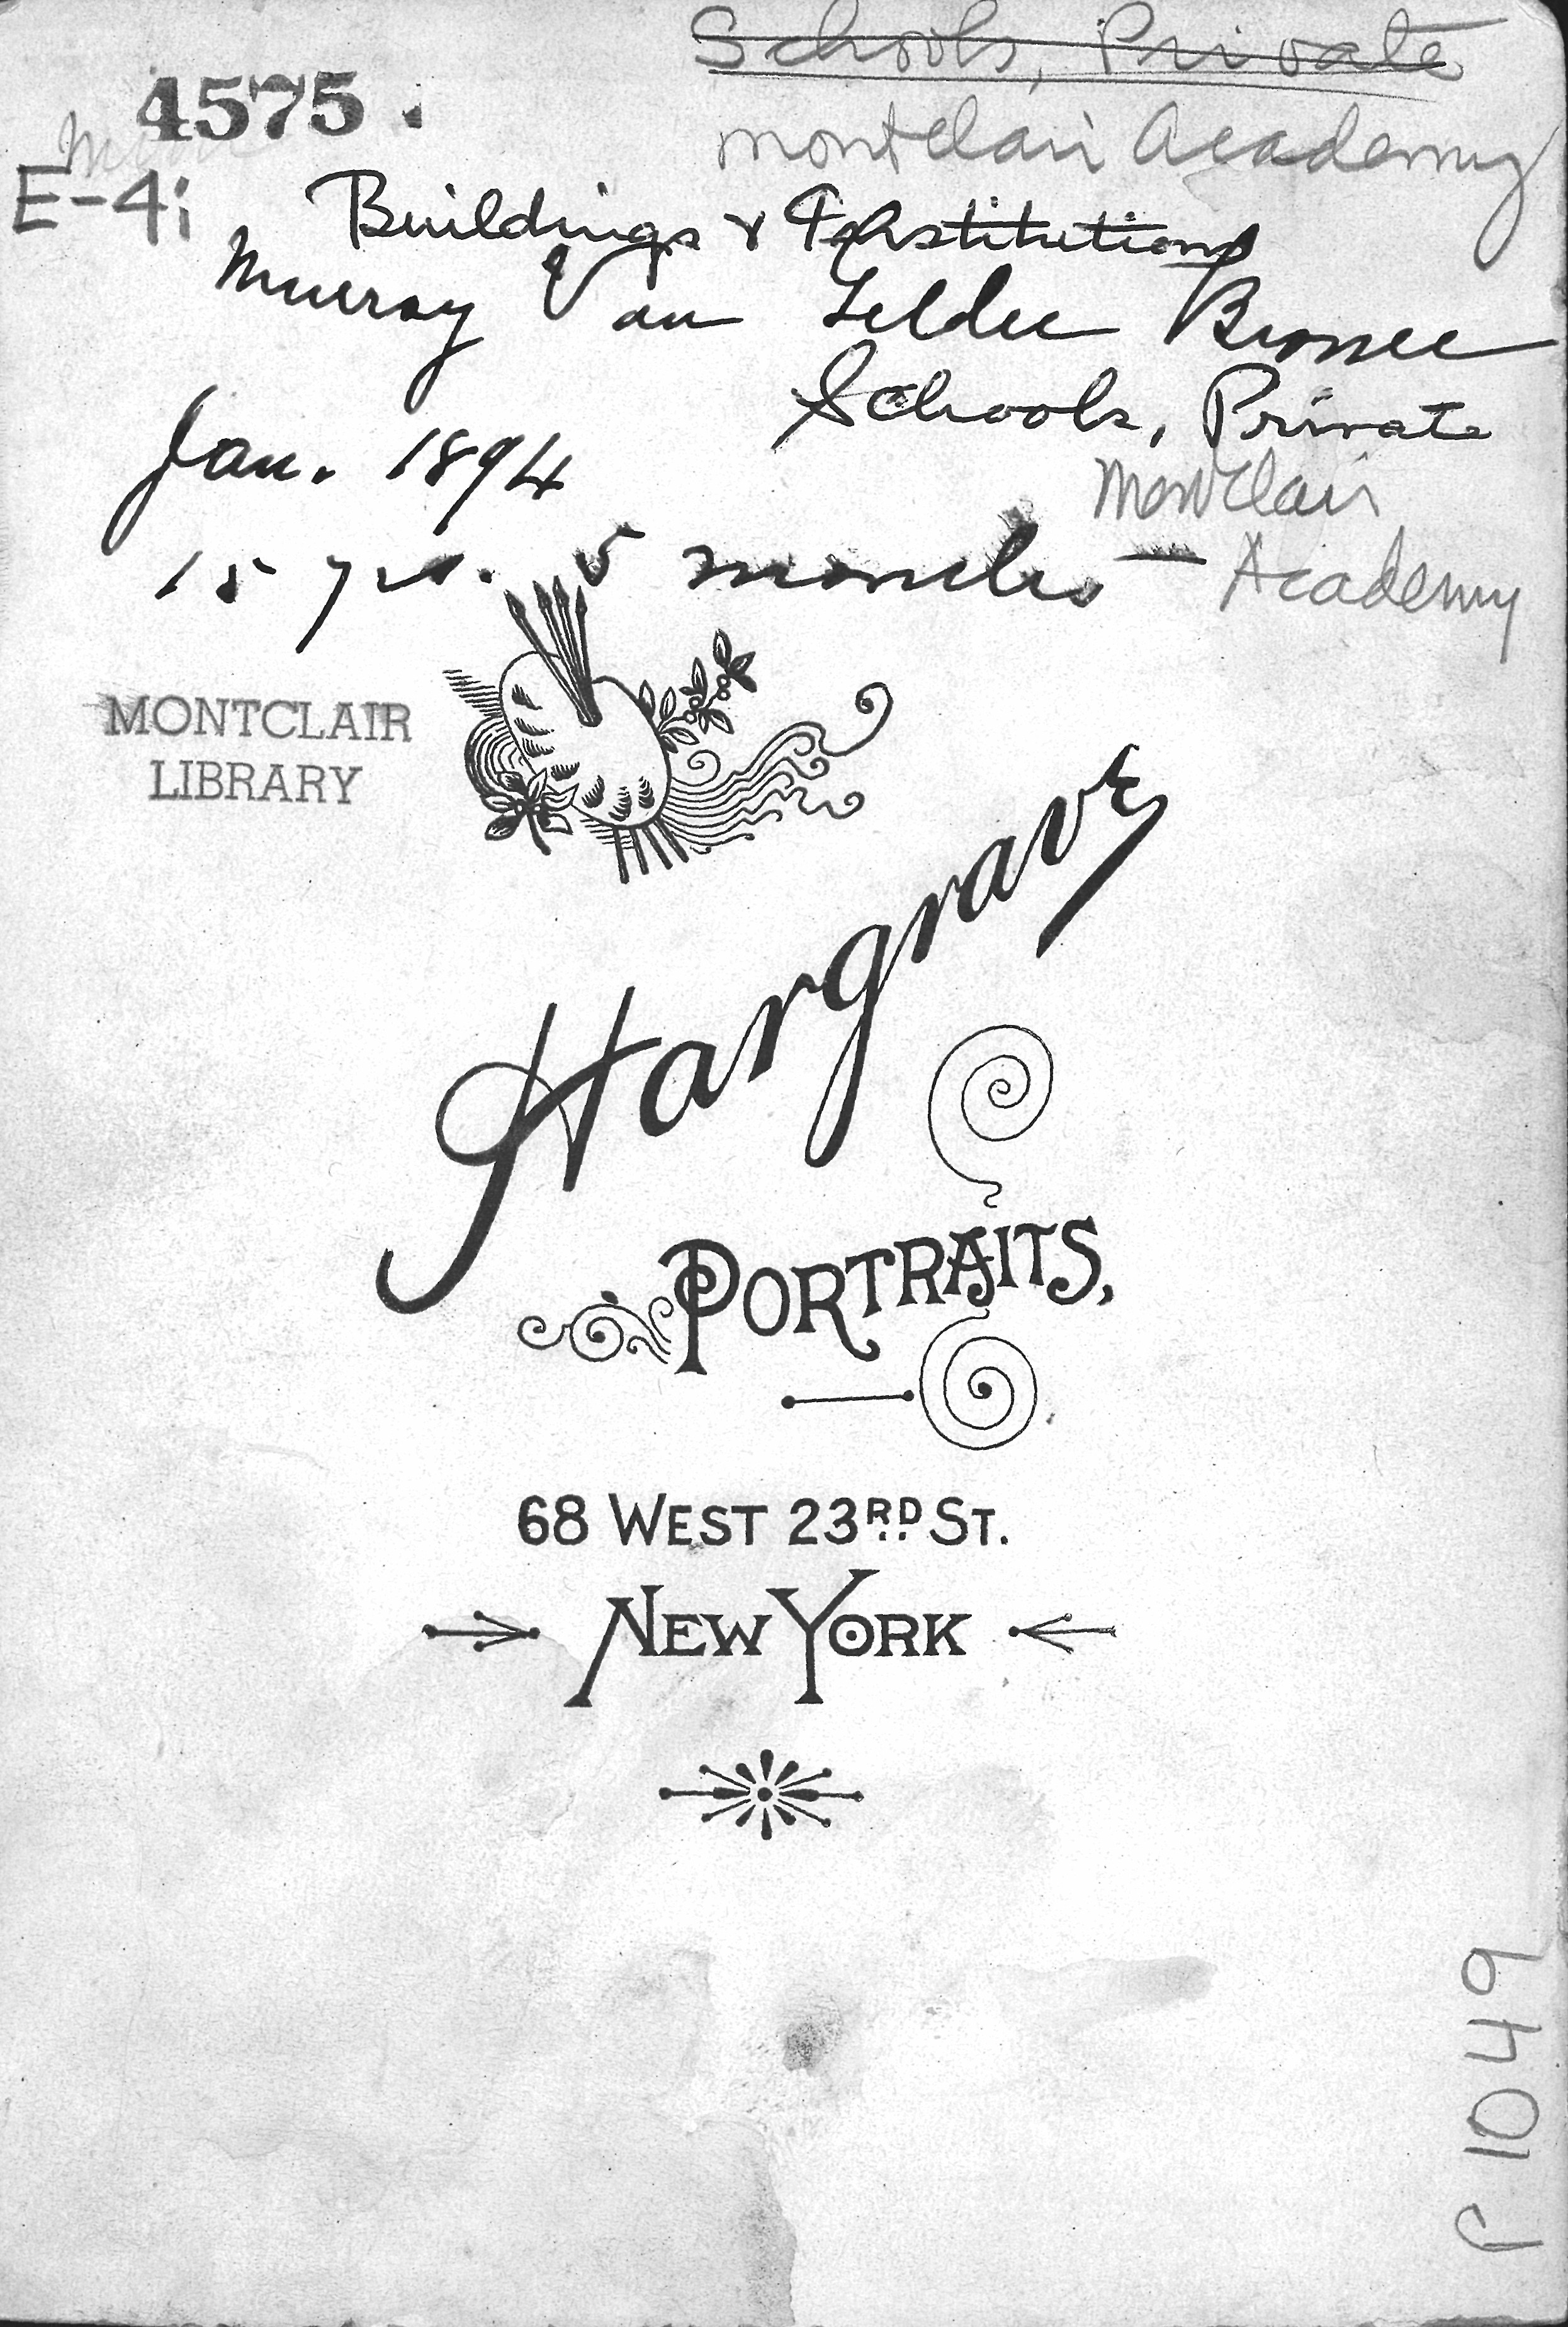 Schools, Private
4575.
Montclair Academy
E-4i
Buildings & Institutions
Murray Van
Schools, Private
Jan. 1894
Montclair
15 yrs. 5 months — Academy
MONTCLAIR
LIBRARY
Hargrave
PORTRAITS,
68 WEST 23RD ST.
NEW YORK
P 1049